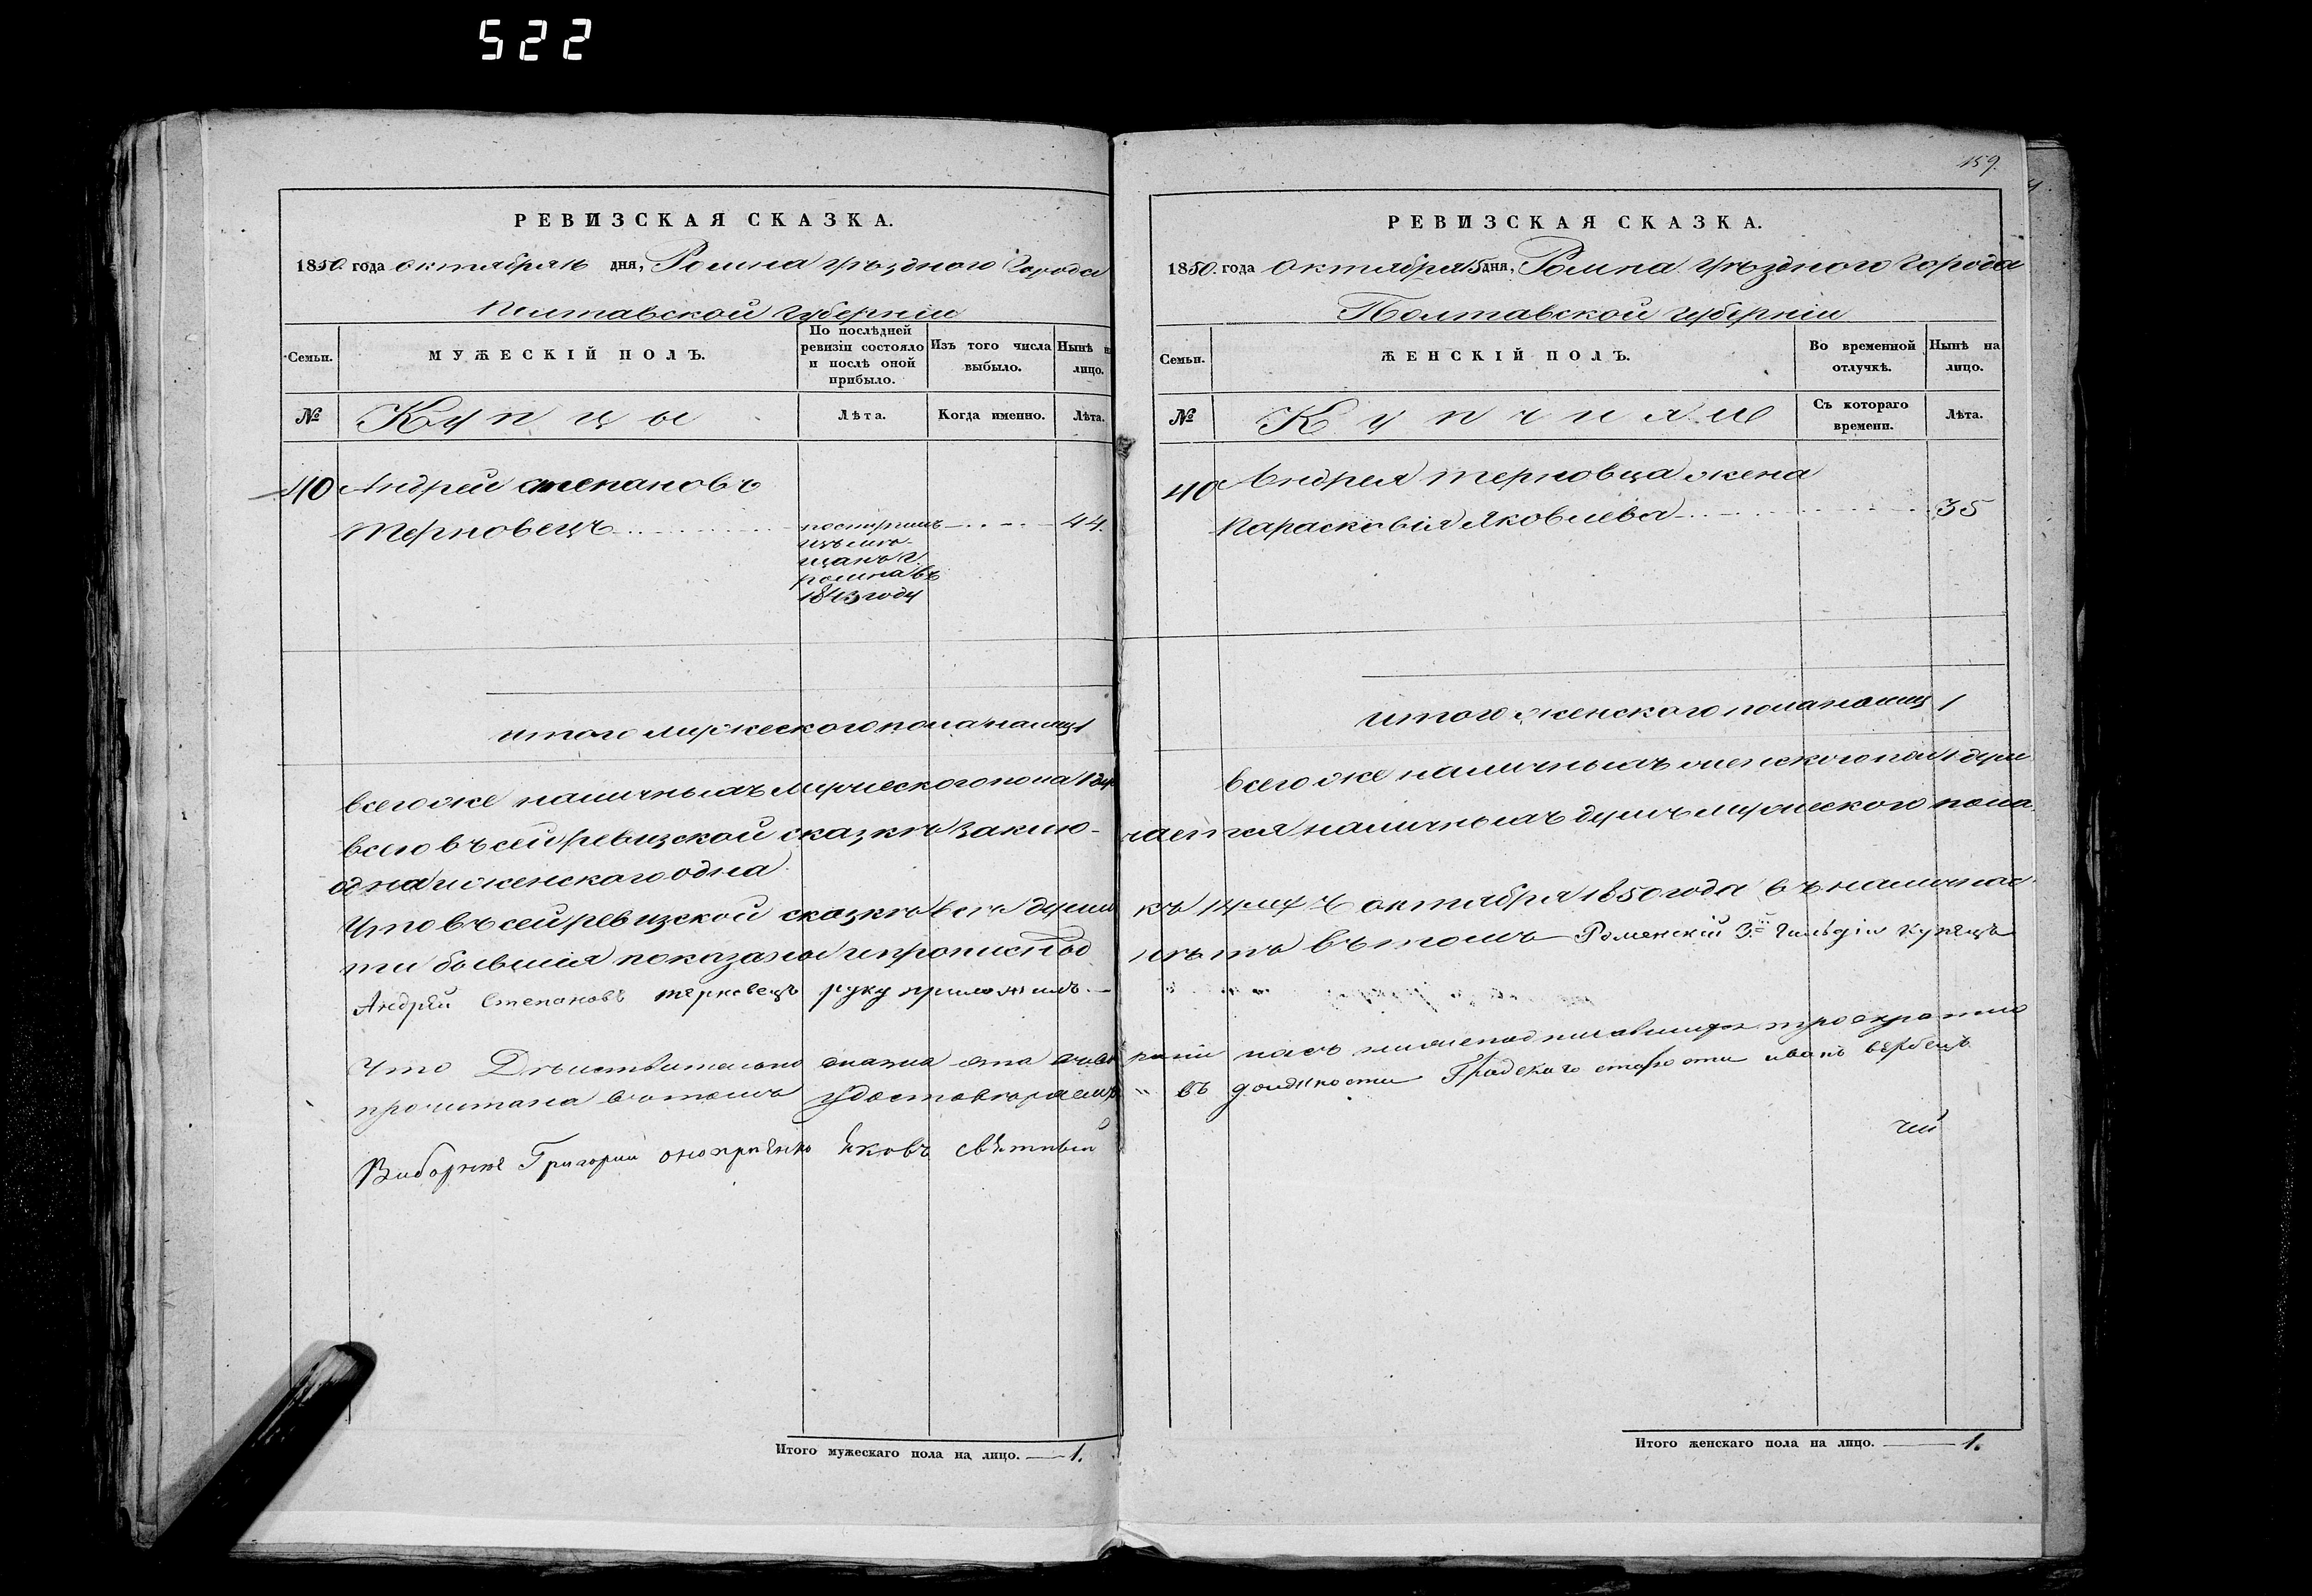 522
РЕВИЗСКАЯ СКАЗКА.
1850. года октября 15 дня, Ромна уѣздного Города
Полтавской Губерніи
Семьи.
МУЖЕСКІЙ ПОЛЪ.
По послѣдней ревизіи состояло и послѣ оной прибыло.
Изъ того числа выбыло.
Нынѣ н лицо.
№
Купцы
Лѣта.
Когда именно.
Лѣта.
40 Андрей степановъ
Терновецъ
поступилъ
изъ мѣ-
щанъ г.
ромна въ
1843 году
44.
итого мужеского пола на лицо 1
всего же наличныхъ мужеского пола 1 душ
всего въ сей ревизской сказкѣ заклю-
одна и женскаго одна
Что въ сей ревизской сказкѣ всѣ души
ти бывшія показаны и прописныхъ
Андрей Степановъ терновецъ руку приложилъ.
Что Дѣиствительно сказка ета
прочитана вотомъ удостовѣряемъ
Виборние Григорий оноприенко Яковъ
Итого мужескаго пола на лицо. 1.
159.
РЕВИЗСКАЯ СКАЗКА.
1850. года Октября 15 дня, Ромна уѣздного Города
Полтавской Губерніи
Семьи.
ЖЕНСКІЙ ПОЛЪ.
Во временной отлучкѣ.
Нынѣ на лицо.
№
Купчихи
Съ котораго времени.
Лѣта.
40 Андрея терновца жена
Парасковія Яковлева 35
итого женского пола на лицо 1
всего же наличныхъ женского пола 1 душ
чается наличныхъ душъ мужеского пола
къ 14му ч октября 1850 года въ наличнос-
нѣтъ въ томъ Роменскій 3й Гильдіи Купецъ
насъ нижеподписавшихся троекратно
въ должности Градскаго старости иванъ вербец
чий
Итого женскаго пола на лицо. 1.